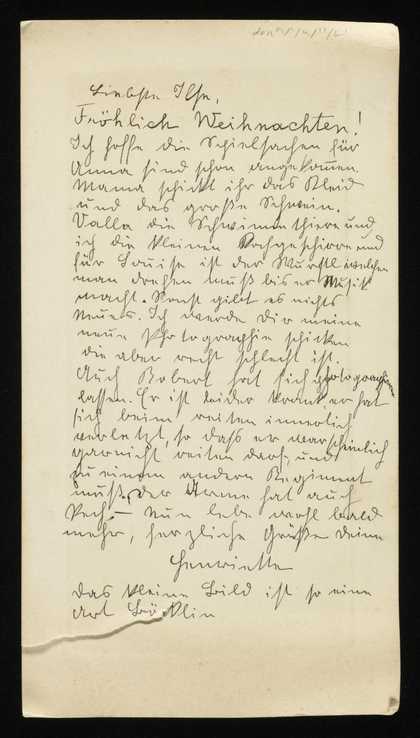 Liebste Ilse,
Fröhlich Weihnachten!
Ich hoffe die Spielsachen für
Anna sind schon angekommen.
Mama schickt ihr das Kleid
und das große Schwein.
Valla die Schwimmthiere und
ich die kleinen Kochgeschirre und
für Louise ist der Wurstl welchen
man drehen muß bis er Musik
macht. Sonst gibt es nichts
Neues. Ich werde Dir meine
neue Photographie schicken
die aber recht schlecht ist.
Auch Robert hat sich photographieren
lassen. Er ist leider krank, er hat
sich beim reiten innerlich
verletzt, so daß er warscheinlich
garnicht reiten darf, und
zu einem andern Regiment
muß, der Arme hat auch
Pech. – Nun lebe wohl bald
mehr, herzliche Grüße Deine
Henriette
das kleine Bild ist so eine
Art Böcklin